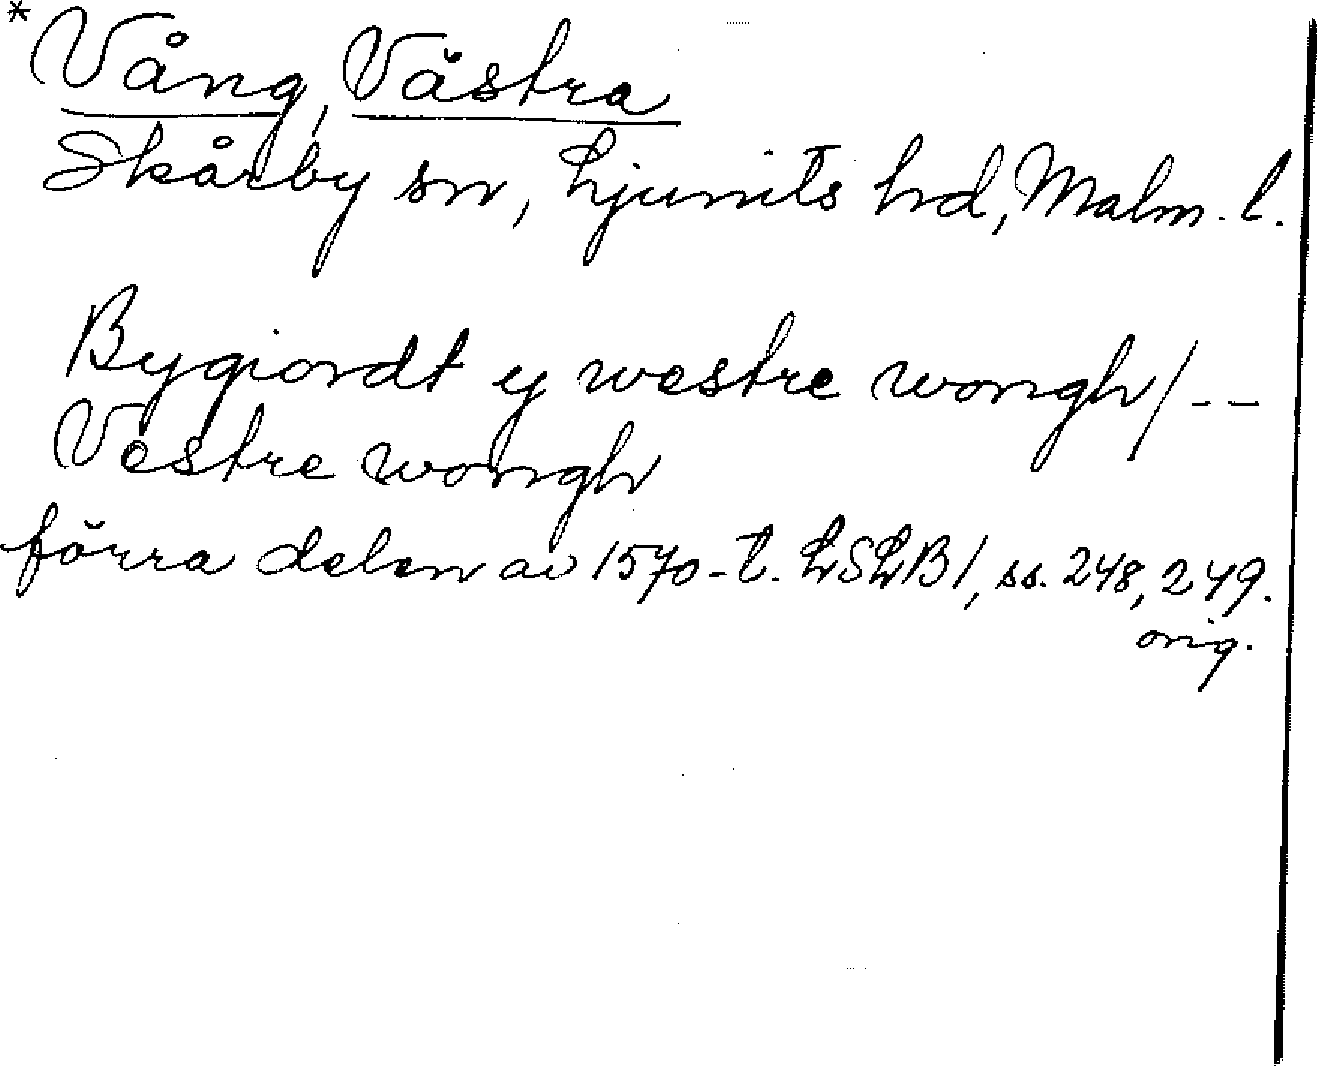 * Vång, Västra
Skårby sn, Ljunits hd, Malm. l.
Bygiordt y westre wongh/--
Vestre wongh
förra delen av 1570-t. LSLB 1, ss. 248, 249.
orig.